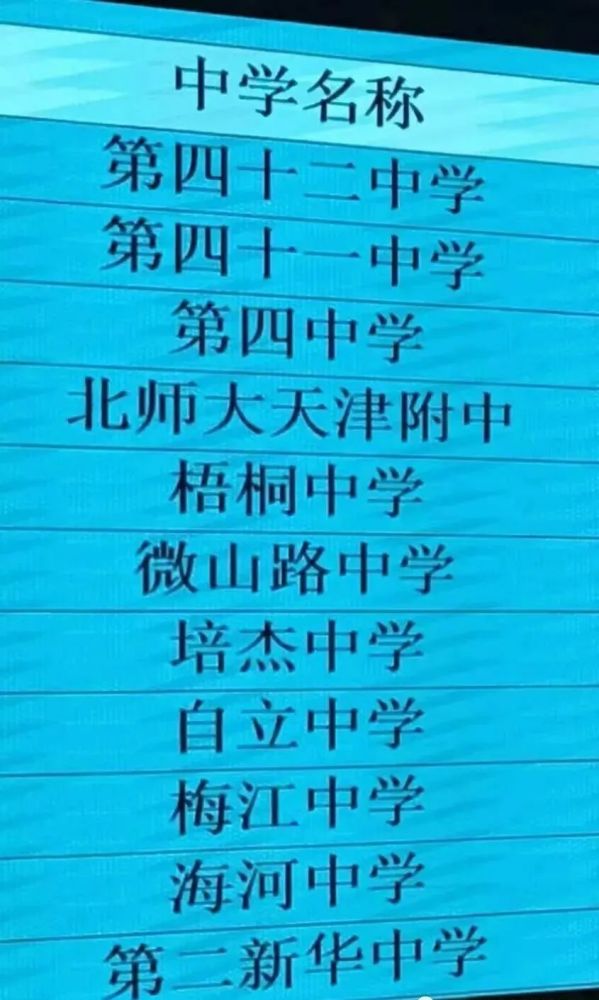 中学名称
第四十二中学
第四十一中学
第四中学
北师大天津附中
梧桐中学
微山路中学
培杰中学
自立中学
梅江中学
海河中学
第二新华中学